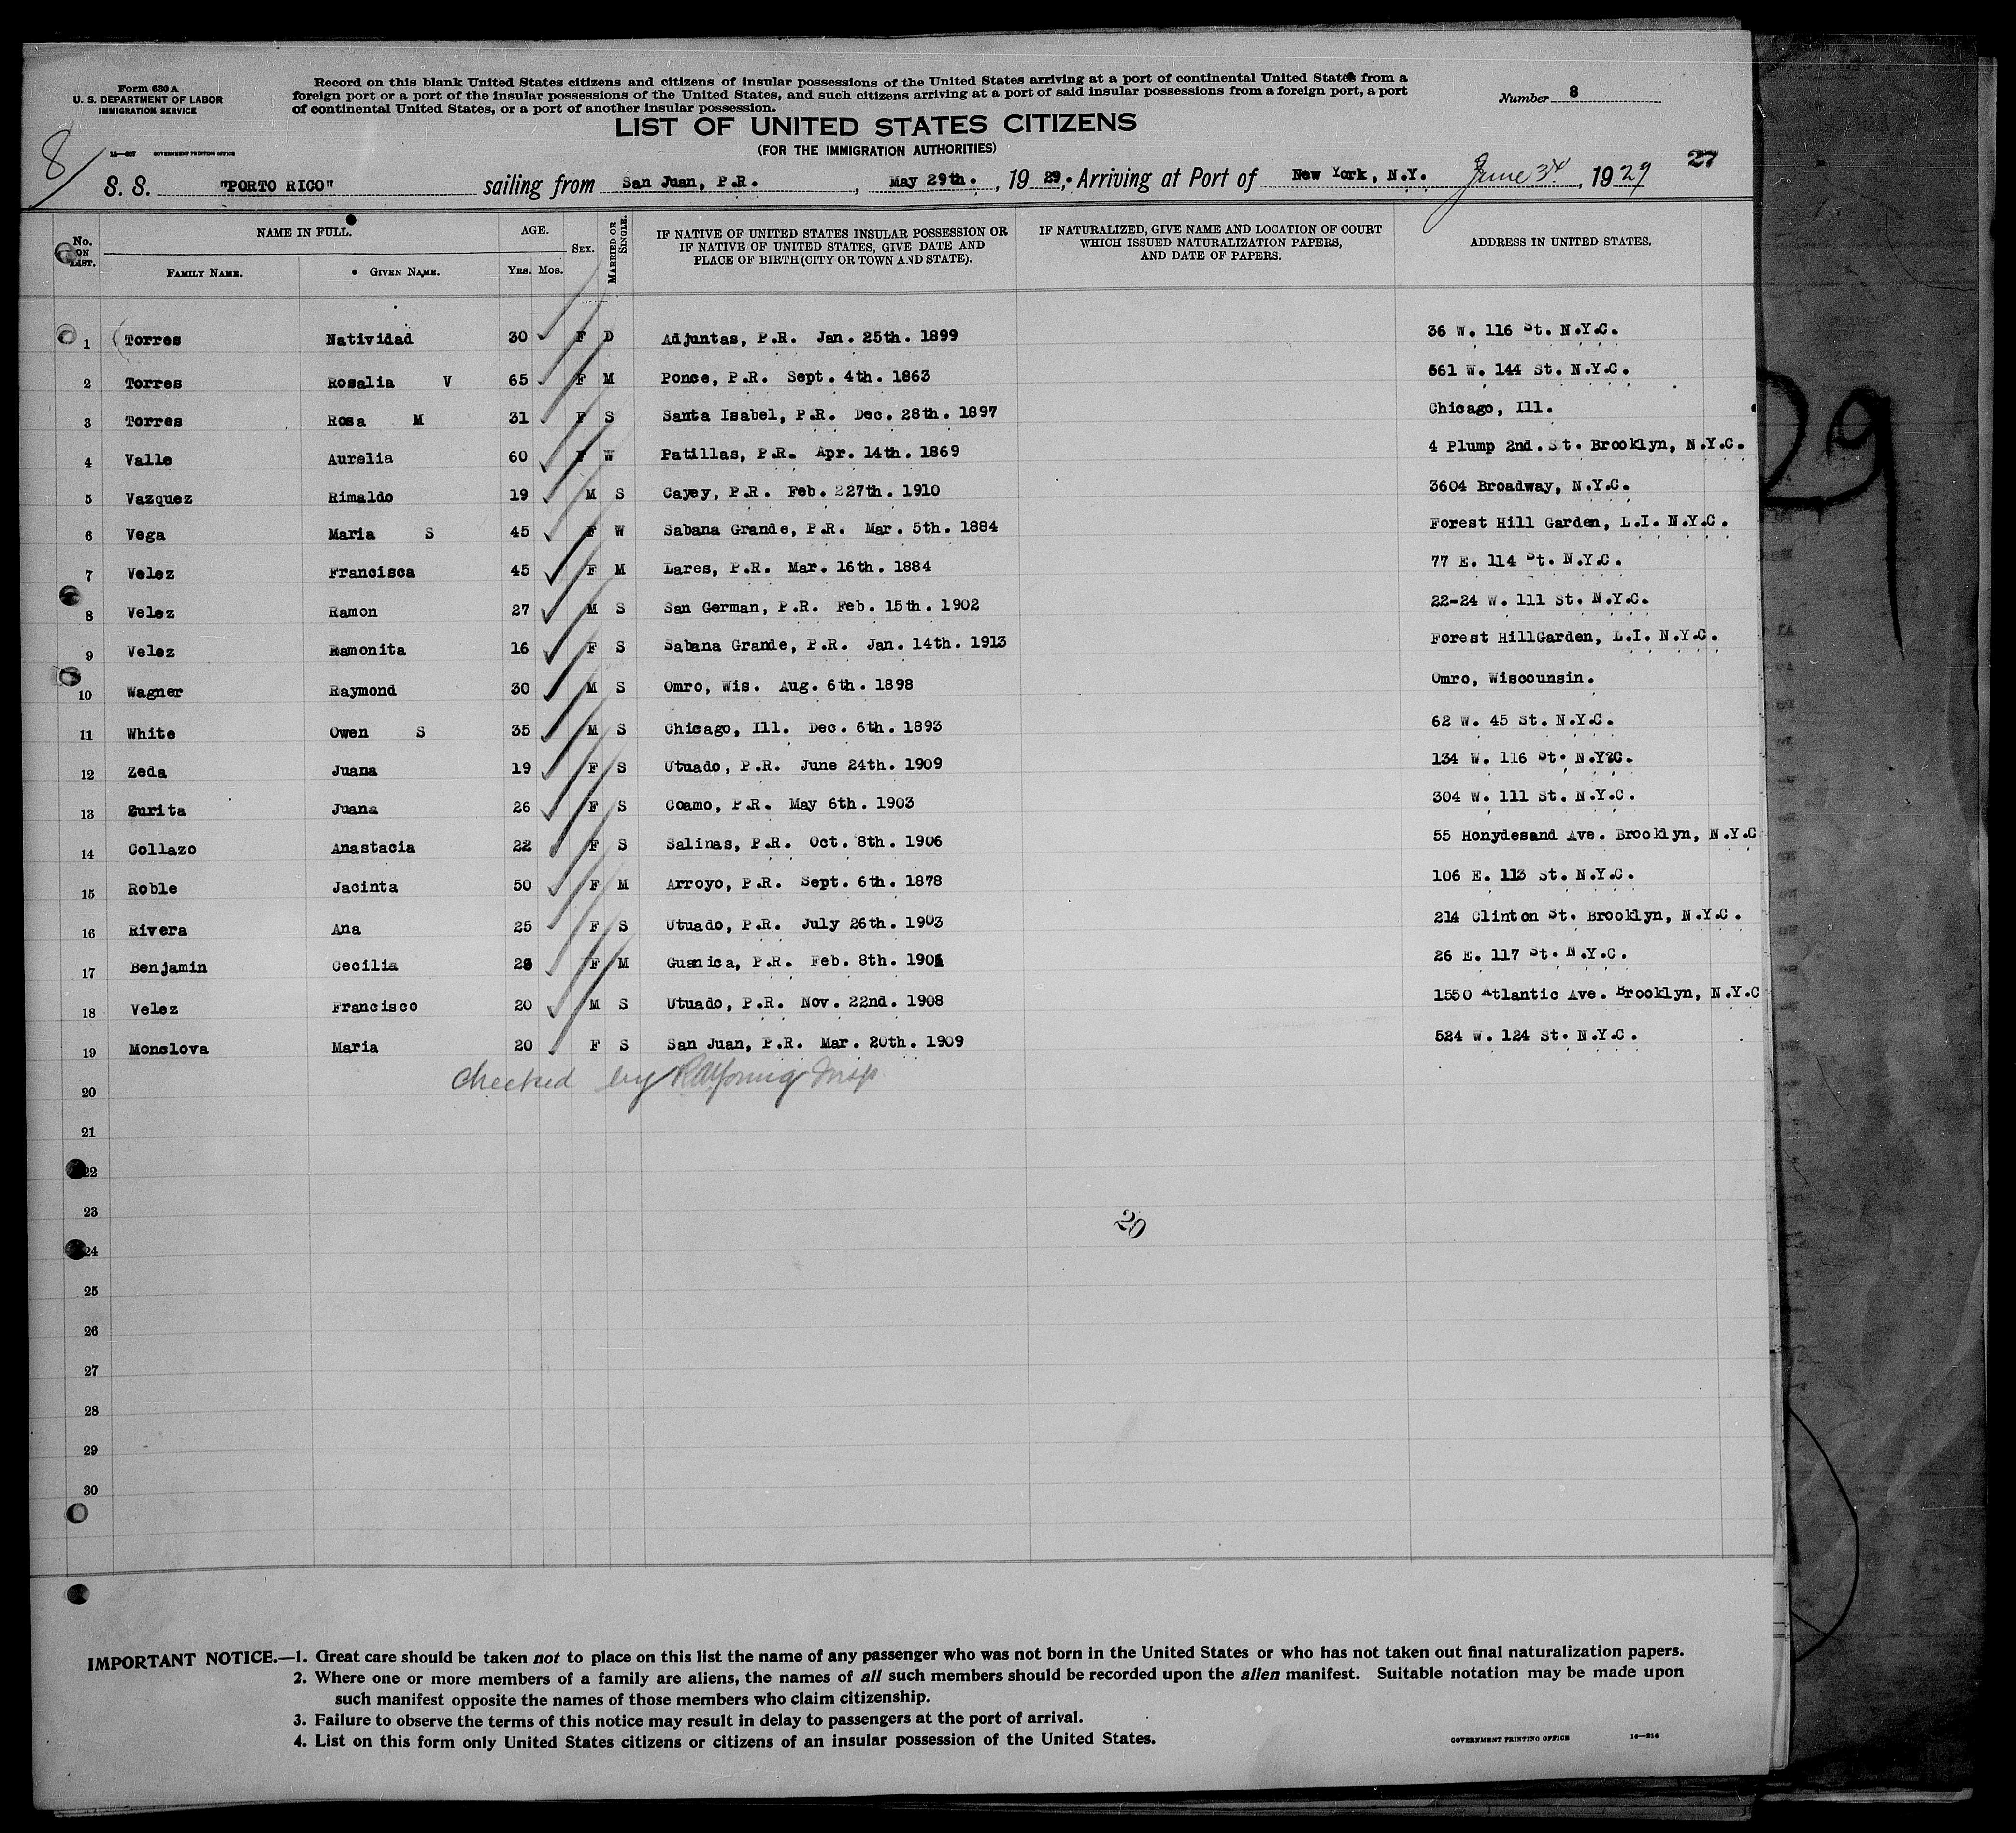 Form 630 A
U. S. DEPARTMENT OF LABOR
IMMIGRATION SERVICE
14—607 GOVERNMENT PRINTING OFFICE
Record on this blank United States citizens and citizens of insular possessions of the United States arriving at a port of continental United States from a
foreign port or a port of the insular possessions of the United States, and such citizens arriving at a port of said insular possessions from a foreign port, a port
of continental United States, or a port of another insular possession.
Number 8
LIST OF UNITED STATES CITIZENS
(FOR THE IMMIGRATION AUTHORITIES)
27
8/
S. S. "PORTO RICO" sailing from San Juan, P.R. , May 29th. , 19 29. Arriving at Port of New York, N.Y. June 3rd , 1929
No. ON LIST. NAME IN FULL. AGE. SEX. MARRIED OR SINGLE. IF NATIVE OF UNITED STATES INSULAR POSSESSION OR IF NATIVE OF UNITED STATES, GIVE DATE AND PLACE OF BIRTH (CITY OR TOWN AND STATE). IF NATURALIZED, GIVE NAME AND LOCATION OF COURT WHICH ISSUED NATURALIZATION PAPERS, AND DATE OF PAPERS. ADDRESS IN UNITED STATES.
FAMILY NAME. GIVEN NAME. YRS. MOS.
1 Torres Natividad 30 F D Adjuntas, P.R. Jan. 25th. 1899 36 W. 116 St. N.Y.C.
2 Torres Rosalia V 65 F M Ponce, P.R. Sept. 4th. 1863 561 W. 144 St. N.Y.C.
3 Torres Rosa M 31 F S Santa Isabel, P.R. Dec. 28th. 1897 Chicago, Ill.
4 Valle Aurelia 60 F W Patillas, P.R. Apr. 14th. 1869 4 Plump 2nd. St. Brooklyn, N.Y.C.
5 Vazquez Rimaldo 19 M S Cayey, P.R. Feb. 227th. 1910 3604 Broadway, N.Y.C.
6 Vega Maria S 45 F W Sabana Grande, P.R. Mar. 5th. 1884 Forest Hill Garden, L.I. N.Y.C.
7 Velez Francisca 45 F M Lares, P.R. Mar. 16th. 1884 77 E. 114 St. N.Y.C.
8 Velez Ramon 27 M S San German, P.R. Feb. 15th. 1902 22-24 W. 111 St. N.Y.C.
9 Velez Ramonita 16 F S Sabana Grande, P.R. Jan. 14th. 1913 Forest HillGarden, L.I. N.Y.C.
10 Wagner Raymond 30 M S Omro, Wis. Aug. 6th. 1898 Omro, Wiscounsin.
11 White Owen S 35 M S Chicago, Ill. Dec. 6th. 1893 62 W. 45 St. N.Y.C.
12 Zeda Juana 19 F S Utuado, P.R. June 24th. 1909 134 W. 116 St. N.Y?C.
13 Zurita Juana 26 F S Coamo, P.R. May 6th. 1903 304 W. 111 St. N.Y.C.
14 Collazo Anastacia 22 F S Salinas, P.R. Oct. 8th. 1906 55 Honydesand Ave. Brooklyn, N.Y.C
15 Roble Jacinta 50 F M Arroyo, P.R. Sept. 6th. 1878 106 E. 113 St. N.Y.C.
16 Rivera Ana 25 F S Utuado, P.R. July 26th. 1903 214 Clinton St. Brooklyn, N.Y.C.
17 Benjamin Cecilia F M Guanica, P.R. Feb. 8th. 26 E. 117 St. N.Y.C.
18 Velez Francisco 20 M S Utuado, P.R. Nov. 22nd. 1908 1550 Atlantic Ave. Brooklyn, N.Y.C
19 Monclova Maria 20 F S San Juan, P.R. Mar. 20th. 1909 524 W. 124 St. N.Y.C.
checked by Insp.
20
21
22
23
20
24
25
26
27
28
29
30
IMPORTANT NOTICE.—1. Great care should be taken not to place on this list the name of any passenger who was not born in the United States or who has not taken out final naturalization papers.
2. Where one or more members of a family are aliens, the names of all such members should be recorded upon the alien manifest. Suitable notation may be made upon
such manifest opposite the names of those members who claim citizenship.
3. Failure to observe the terms of this notice may result in delay to passengers at the port of arrival.
4. List on this form only United States citizens or citizens of an insular possession of the United States.
GOVERNMENT PRINTING OFFICE 14—214
29